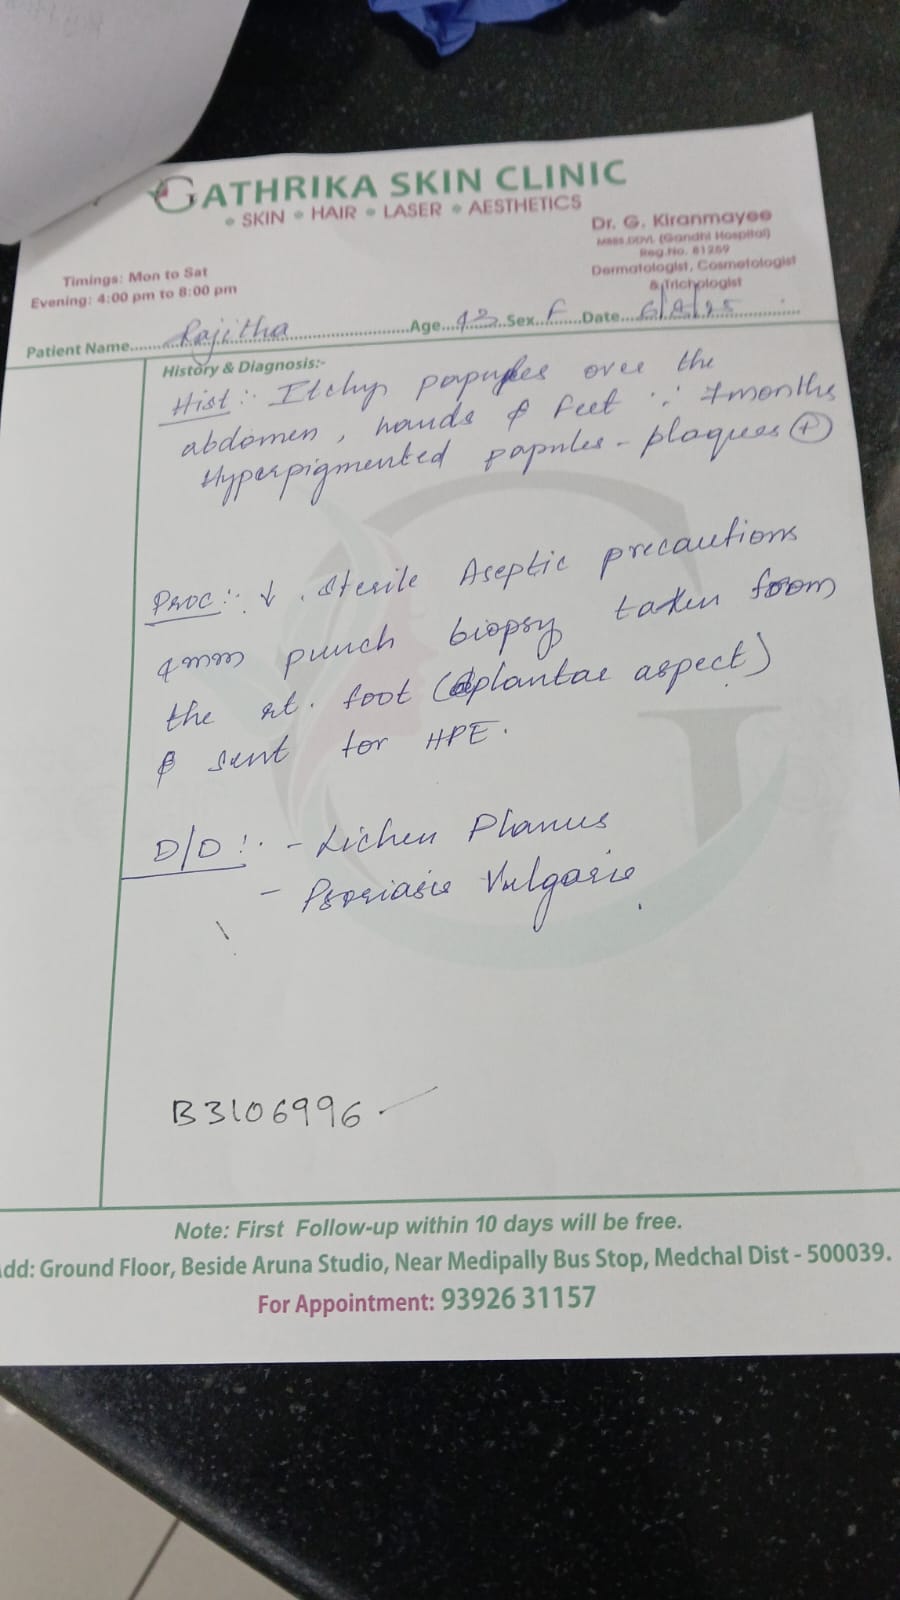 GATHRIKA SKIN CLINIC
• SKIN • HAIR • LASER • AESTHETICS
Dr. G. Kiranmayee
MBBS.DDVL (Gandhi Hospital)
Reg.No. 81259
Dermatologist, Cosmetologist
& Trichologist
Timings: Mon to Sat
Evening: 4:00 pm to 8:00 pm
Patient Name......Rajitha......Age...42...Sex..F.....Date...6/8/25......
History & Diagnosis:-
Hist :- Itchy papules over the
abdomen, hands & feet ∵ 7months
Hyperpigmented papules - plaques ⊕
Proc :- ↓ . Sterile Aseptic precautions
4mm punch biopsy taken from
the rt. foot (plantar aspect)
& sent for HPE.
D/D :- - Lichen Planus
- Psoriasis Vulgaris
B3106996
Note: First Follow-up within 10 days will be free.
Add: Ground Floor, Beside Aruna Studio, Near Medipally Bus Stop, Medchal Dist - 500039.
For Appointment: 93926 31157